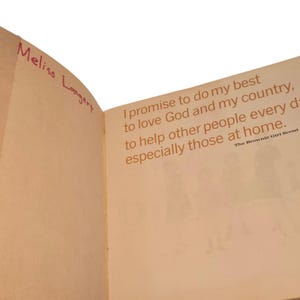 Melisa Longery
I promise to do my best
to love God and my country,
to help other people every d
especially those at home.
The Brownie Girl Scout